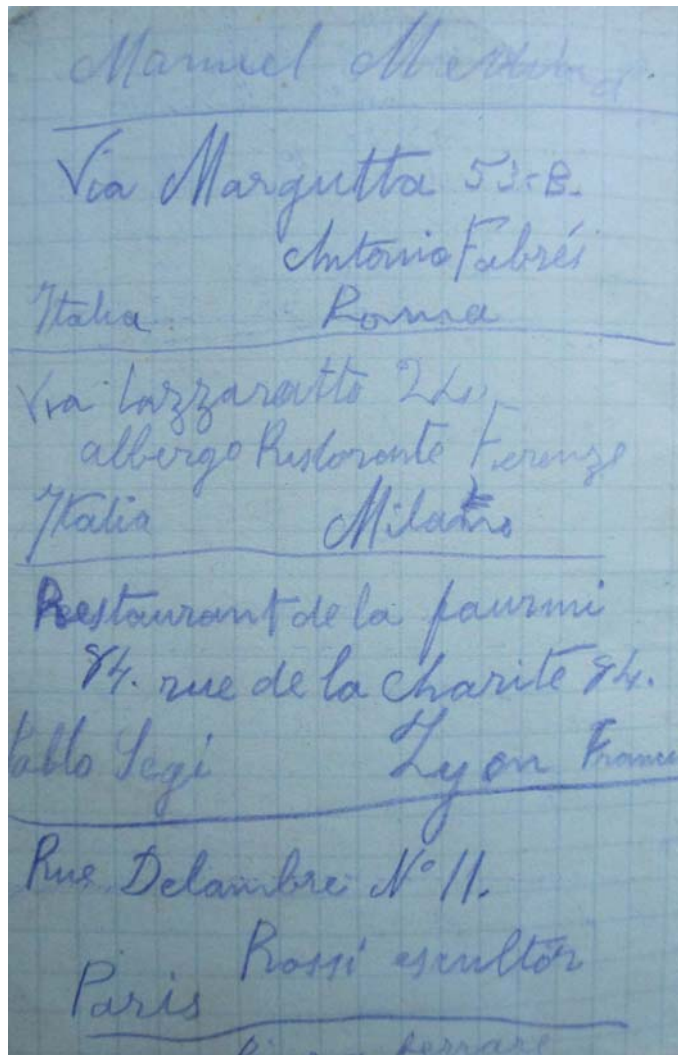 Manuel
Via Margutta 53-B.
Antonio Fabrés
Italia Roma
Via Lazzaretto
albergo Ristorante Firenze
Italia Milano
Restaurant de la fourmi
84. rue de la charité 84.
Pablo Segi Lyon France
Rue Delambre Nº 11.
Rossi escultor
Paris